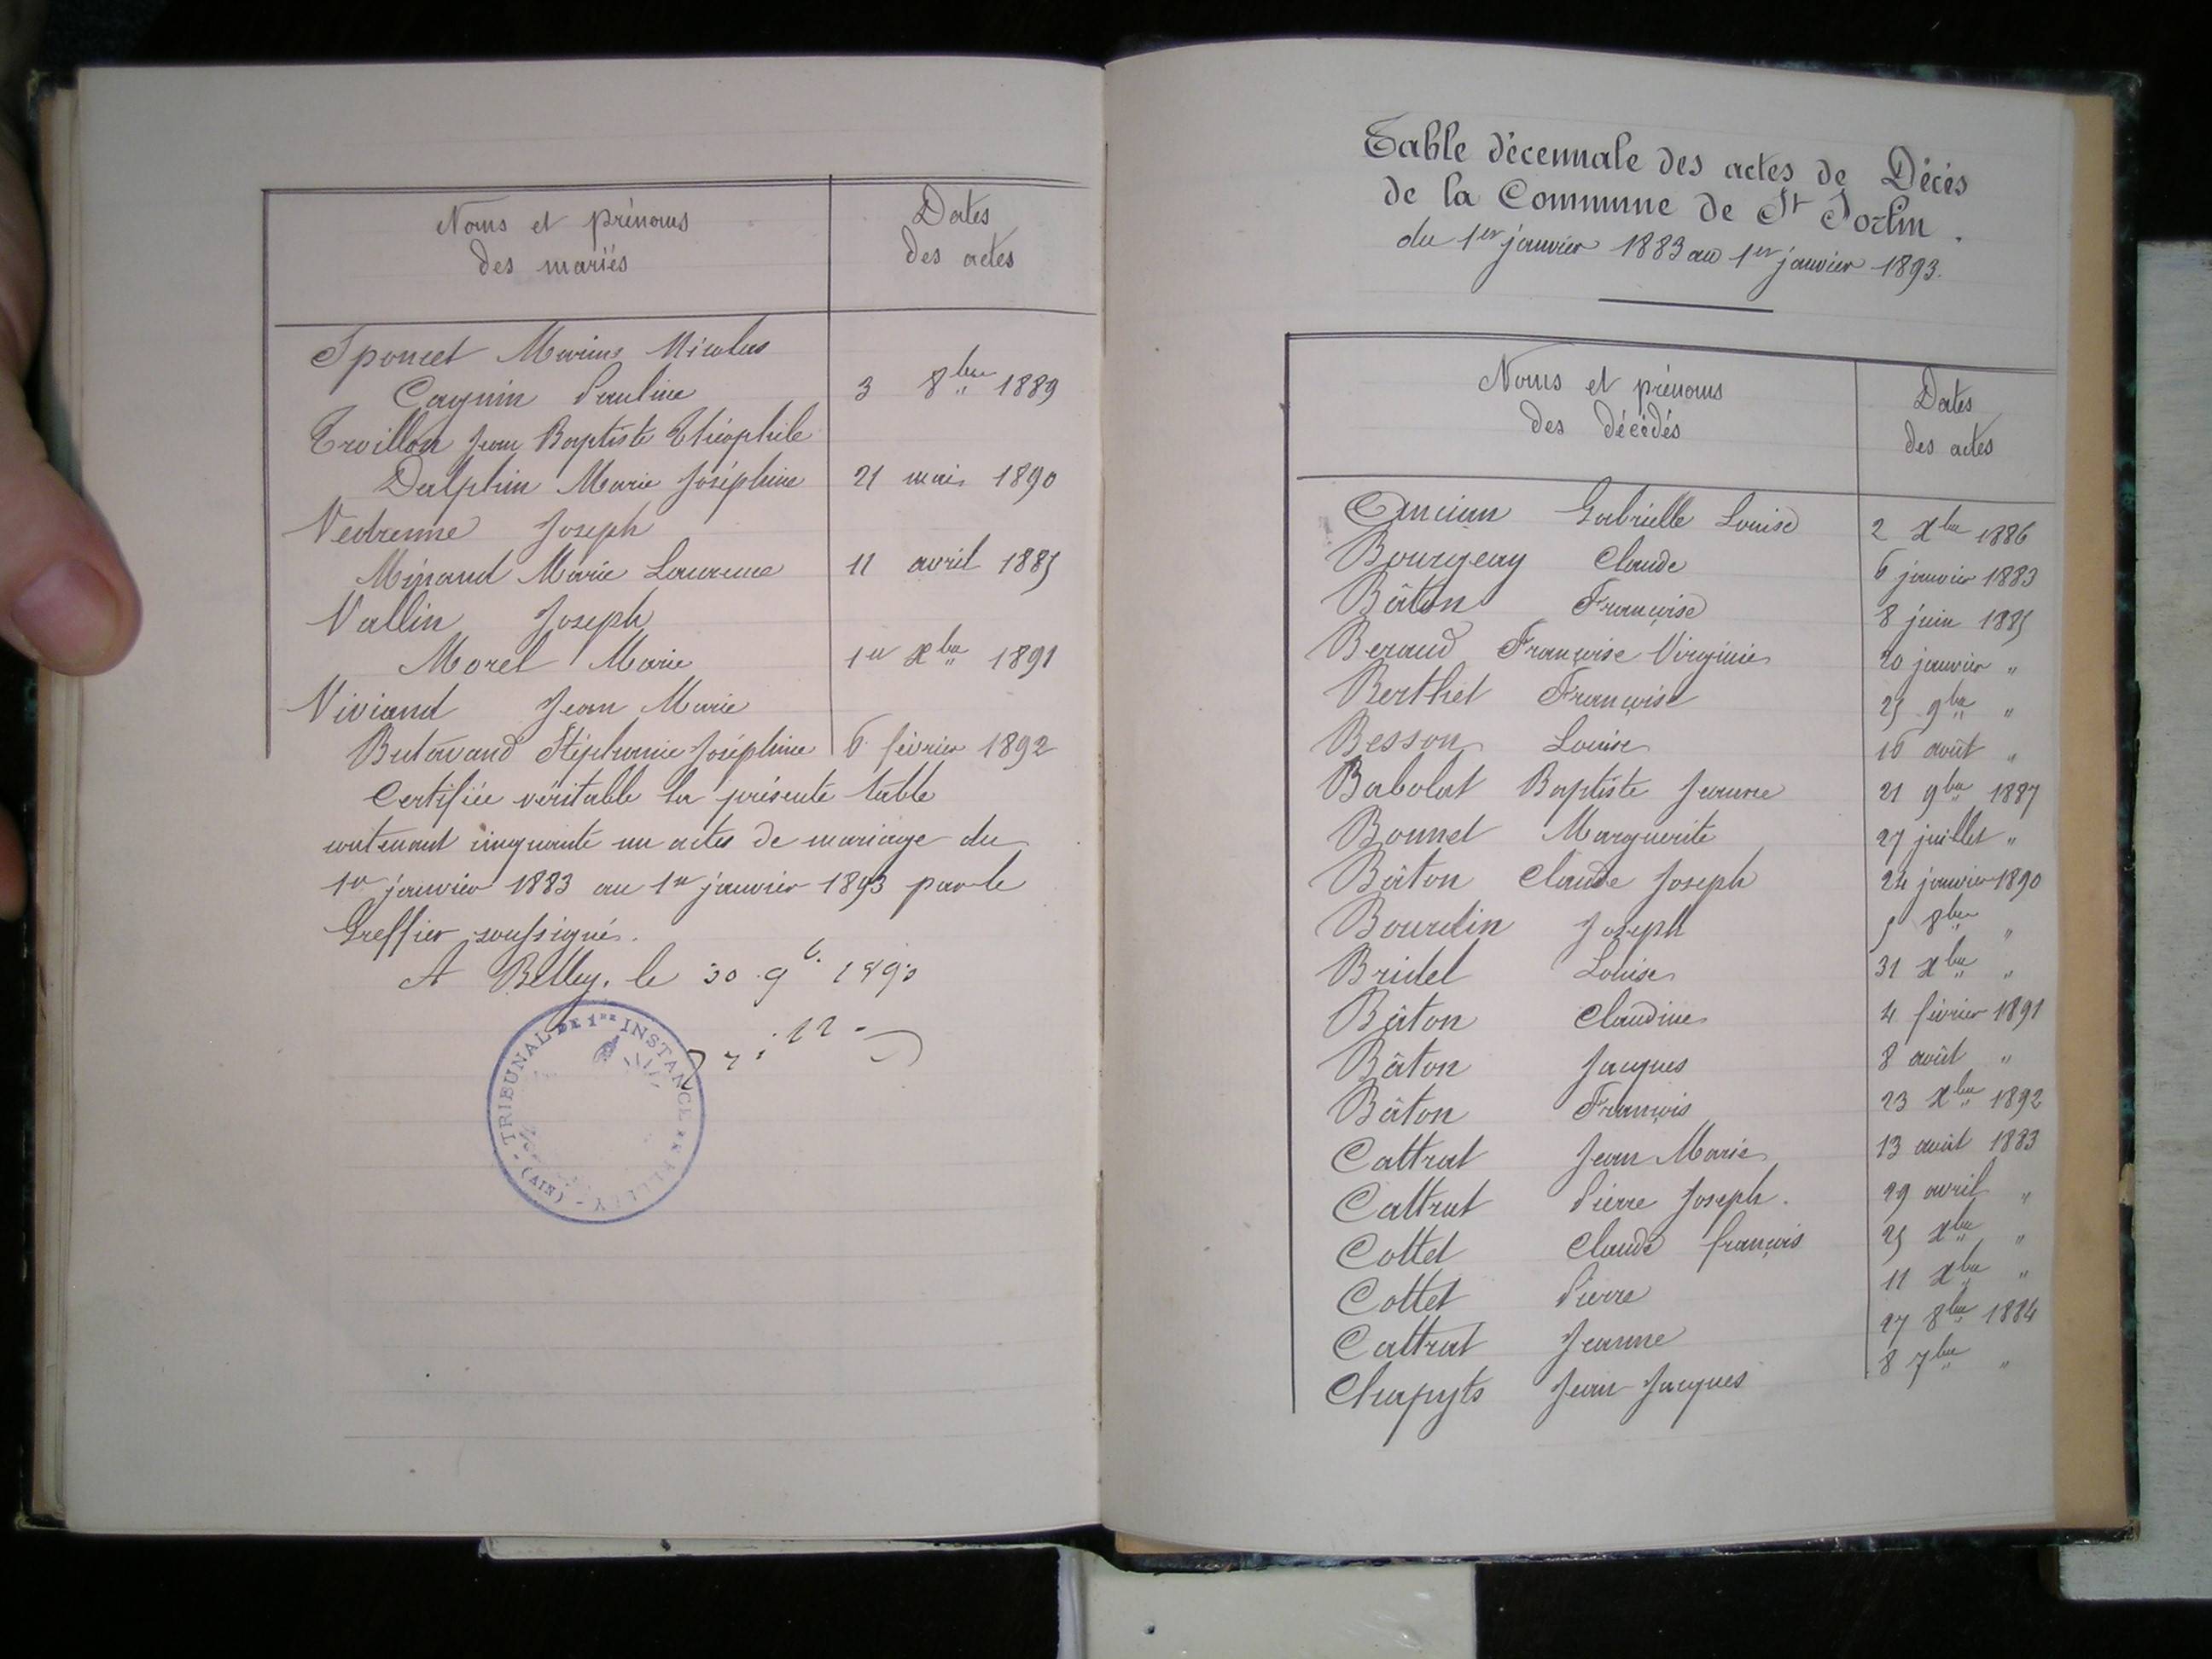 Noms et prénoms
des mariés
Dates
des actes
Sponcet Marius Nicolas
Cagnin Pauline 3 8bre 1889
Trvillon Jean Baptiste Théophile
Dalphin Marie Joséphine 21 mai 1890
Vedrenne Joseph
Minand Marie Laurence 11 avril 1885
Vallin Joseph
Morel Marie 1er Xbre 1891
Viviand Jean Marie
Butavand Stéphanie Joséphine 6 février 1892
Certifiée véritable la présente table
contenant cinquante un actes de mariage du
1er janvier 1883 au 1er janvier 1893 par le
Greffier soussigné.
A Belley, le 30 9b. 1893
TRIBUNAL DE 1RE INSTANCE
BELLEY - (AIN) -
Table décennale des actes de Décès
de la Commune de St Sorlin.
du 1er janvier 1883 au 1er janvier 1893.
Noms et prénoms
des décédés
Dates
des actes
Ancian Gabrielle Louise 2 Xbre 1886
Bourgeay Claude 6 janvier 1883
Bâton Françoise 8 juin 1885
Beraud Françoise Virginie 20 janvier "
Berthet Françoise 25 9bre "
Besson Louise 16 août "
Babolat Baptiste Jeanne 21 9bre 1887
Bonnet Marguerite 27 juillet "
Bâton Claude Joseph 24 janvier 1890
Bourdin Joseph 5 8bre "
Bridel Louise 31 Xbre "
Bâton Claudine 4 février 1891
Bâton Jacques 8 août "
Bâton François 23 Xbre 1892
Cattrat Jean Marie 13 août 1883
Cattrat Pierre Joseph. 29 avril "
Cottet Claude françois 25 Xbre "
Cottet Pierre 11 Xbre "
Cattrat Jeanne 27 8bre 1884
Chapyts Jean Jacques 8 7bre "